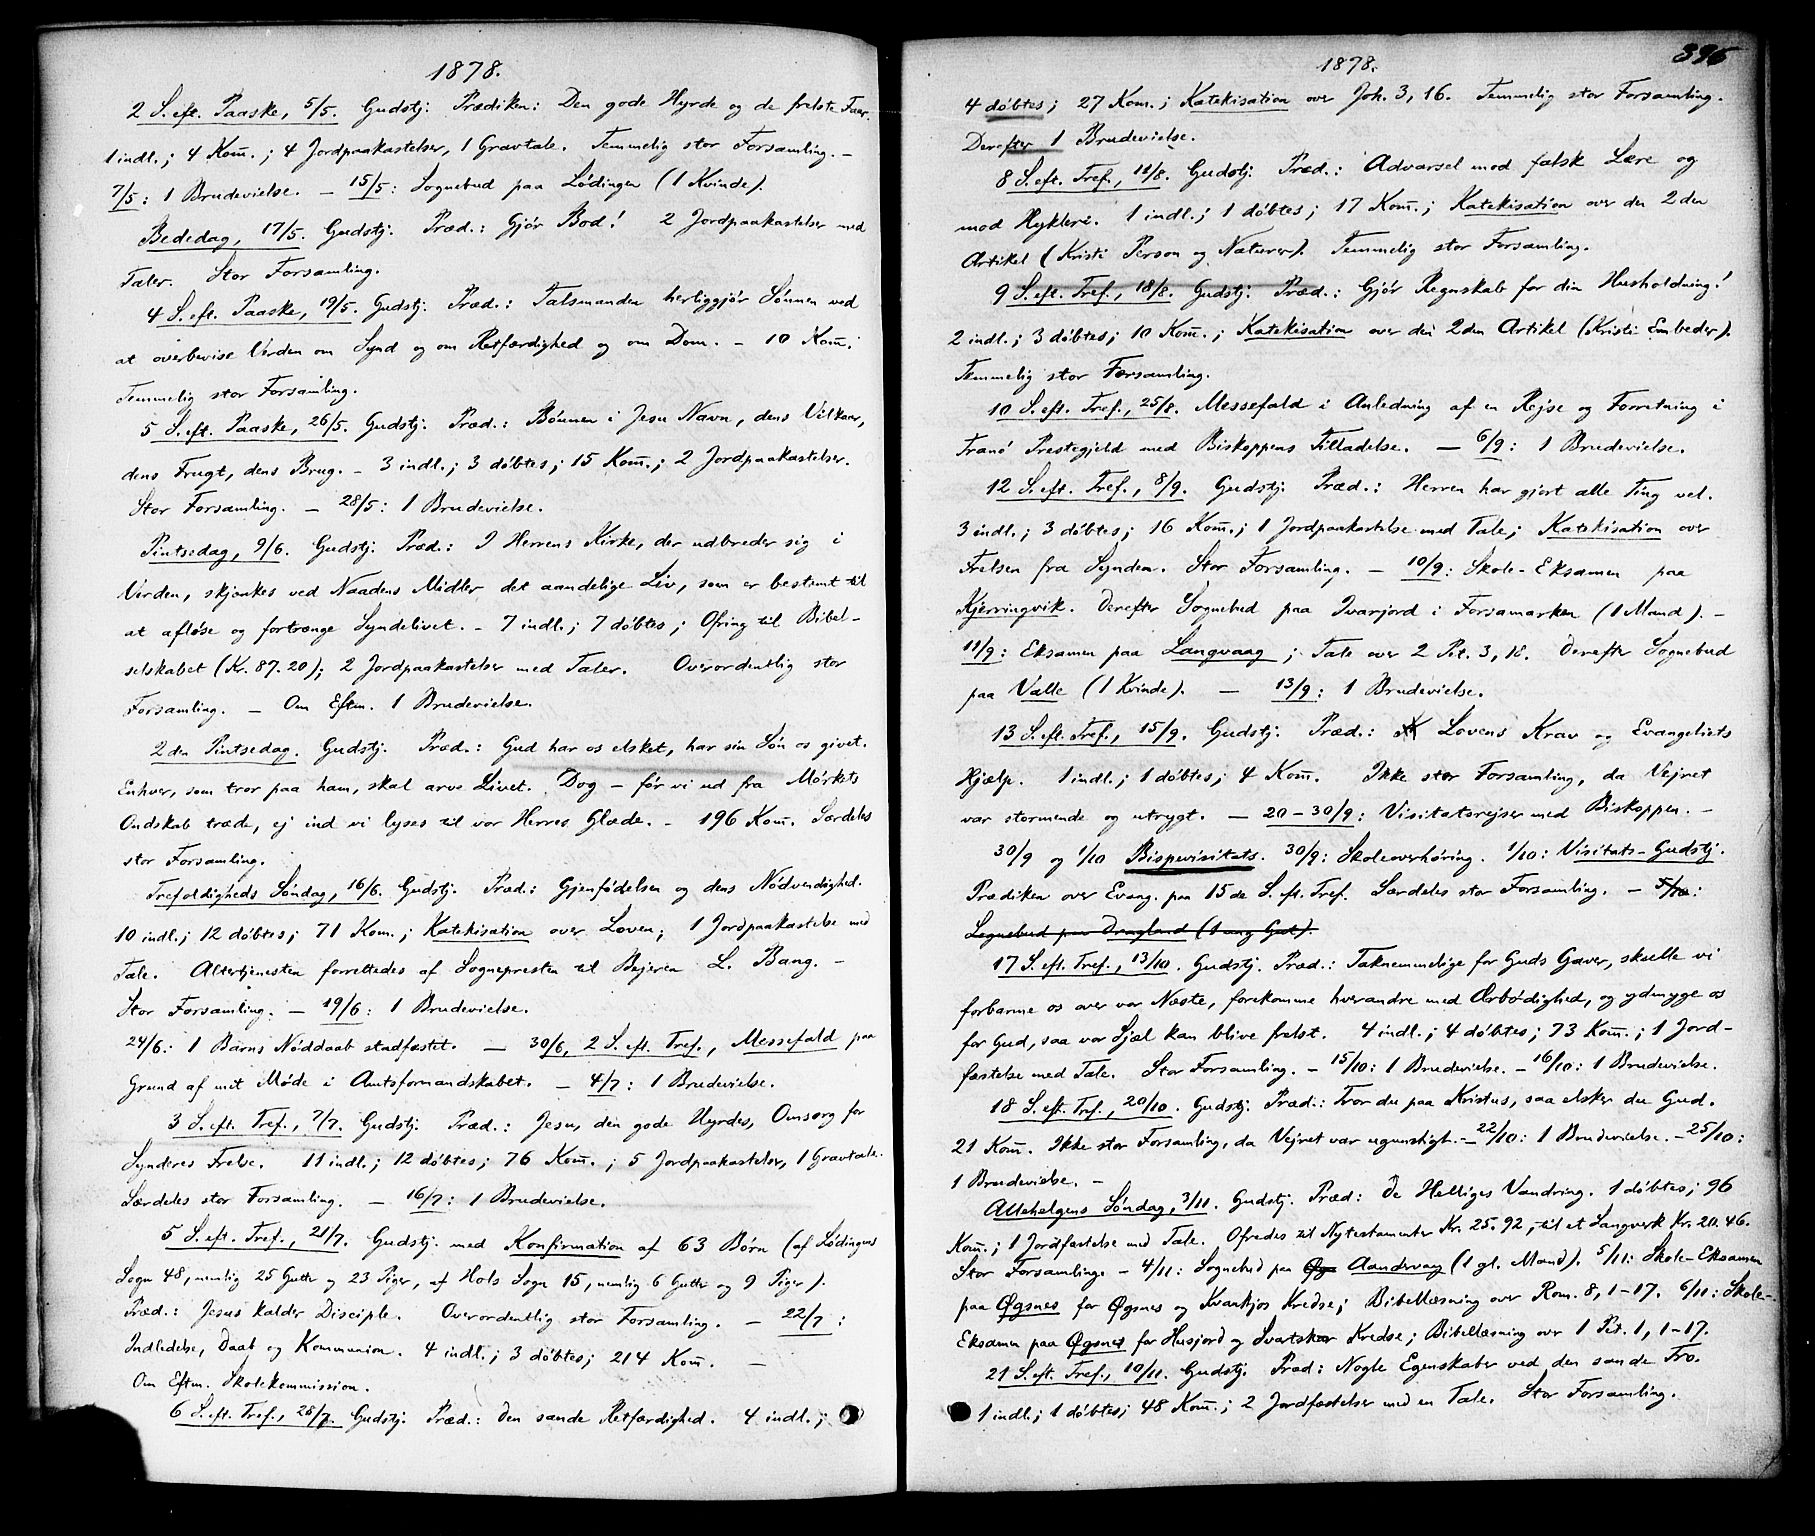 1878.
2 S. eft. Paaske, 5/5. Gudstj. Prædiken: Den gode Hyrde og de frelste Faar.
1 indl.; 4 Kom̄.; 4 Jordpaakastelser, 1 Gravtale. Temmelig stor Forsamling. –
7/5: 1 Brudevielse. – 15/5: Sognebud paa Lødingen (1 Kvinde).
Bededag, 17/5. Gudstj. Præd.: Gjør Bod! 2 Jordpaakastelser med
Taler. Stor Forsamling.
4 S. eft. Paaske, 19/5. Gudstj. Præd.: Talsmanden herliggjør Sønnen ved
at overbevise Verden om Synd og om Retfærdighed og om Dom. – 10 Kom̄.
Temmelig stor Forsamling.
5 S. eft. Paaske, 26/5. Gudstj. Præd.: Bønnen i Jesu Navn, dens Vilkaar,
dens Frugt, dens Brug. – 3 indl.; 3 døbtes; 15 Kom̄.; 2 Jordpaakastelser.
Stor Forsamling. – 28/5: 1 Brudevielse.
Pintsedag, 9/6. Gudstj. Præd.: I Herrens Kirke, der udbreder sig i
Verden, skjænkes ved Naadens Midler det aandelige Liv, som er bestemt til
at afløse og fortrænge Syndelivet. – 7 indl.; 7 døbtes; Ofring til Bibel-
selskabet (Kr. 87.20); 2 Jordpaakastelser med Taler. Overordentlig stor
Forsamling. – Om Eftm. 1 Brudevielse.
2den Pintsedag. Gudstj. Præd.: Gud har os elsket, har sin Søn os givet.
Enhver, som tror paa ham, skal arve Livet. Dog – før vi ud fra Mørkets
Ondskab træde, ej ind vi lyses til vor Herres Glæde. – 196 Kom̄. Særdeles
stor Forsamling.
Trefoldigheds Søndag, 16/6. Gudstj. Præd.: Gjenfødelsen og dens Nødvendighed.
10 indl.; 12 døbtes; 71 Kom.; Katekisation over Loven; 1 Jordpaakastelse med
Tale. Altertjenesten forrettedes af Sognepresten til Bejeren L. Bang. –
Stor Forsamling. – 19/6: 1 Brudevielse.
24/6: 1 Barns Nøddaab stadfæstet. – 30/6, 2 S. eft. Tref., Messefald paa
Grund af mit Møde i Amtsformandskabet. – 4/7: 1 Brudevielse.
3 S. eft. Tref., 7/7. Gudstj. Præd.: Jesu, den gode Hyrdes, Omsorg for
Synderes Frelse. 11 indl.; 12 døbtes; 76 Kom̄.; 5 Jordpaakastelser, 1 Gravtale.
Særdeles stor Forsamling. – 16/7: 1 Brudevielse.
5 S. eft. Tref., 21/7. Gudstj. med Konfirmation af 63 Børn (af Lødingens
Sogn 48, nemlig 25 Gutter og 23 Piger, af Hols Sogn 15, nemlig 6 Gutter og 9 Piger).
Præd.: Jesus kalder Disciple. Overordentlig stor Forsamling. – 22/7:
Indledelse, Daab og Kommunion. 4 indl.; 3 døbtes; 214 Kom̄. –
Om Eftm. Skolekommission.
6 S. eft. Tref., 28/7. Gudstj. Præd.: Den sande Retfærdighed. 4 indl.;
396
1878.
4 døbtes; 27 Kom.; Katekisation over Joh. 3, 16. Temmelig stor Forsamling.
Derefter 1 Brudevielse.
8 S. eft. Tref., 11/8. Gudstj. Præd.: Advarsel mod falsk Lære og
mod Hykleri. 1 indl.; 1 døbtes; 17 Kom̄.; Katekisation over den 2den
Artikel (Kristi Person og Naturer). Temmelig stor Forsamling.
9 S. eft. Tref., 18/8. Gudstj. Præd.: Gjør Regnskab for din Husholdning!
2 indl.; 3 døbtes; 10 Kom̄.; Katekisation over den 2den Artikel (Kristi Embeder).
Temmelig stor Forsamling.
10 S. eft. Tref., 25/8. Messefald i Anledning af en Rejse og Forretning i
Tranø Prestegjeld med Biskoppens Tilladelse. – 6/9: 1 Brudevielse.
12 S. eft. Tref., 8/9. Gudstj. Præd.: Herren har gjort alle Ting vel.
3 indl.; 3 døbtes; 16 Kom̄.; 1 Jordpaakastelse med Tale; Katekisation over
Frelsen fra Synden. Stor Forsamling. – 10/9: Skole-Eksamen paa
Kjerringvik. Derefter Sognebud paa Ivarjord i Forsamarken (1 Mand). –
11/9: Eksamen paa Langvaag; Tale over 2 Pet. 3, 18. Derefter Sognebud
paa Valle (1 Kvinde). – 13/9: 1 Brudevielse.
13 S. eft. Tref., 15/9. Gudstj. Præd.: Lovens Krav og Evangeliets
Hjælp. 1 indl.; 1 døbtes; 4 Kom̄. Ikke stor Forsamling, da Vejret
var stormende og utrygt. – 20–30/9: Visitatsrejser med Biskoppen. –
30/9 og 1/10 Bispevisitats. 30/9: Skoleoverhøring. 1/10: Visitats-Gudstj.
Prædiken over Evang. paa 15de S. eft. Tref. Særdeles stor Forsamling. – 5/10:
Sognebud paa Dragland (1 ung Gut).
17 S. eft. Tref., 13/10. Gudstj. Præd.: Taknemmelige for Guds Gaver, skulle vi
forbarme os over vor Næste, forekomme hverandre med Ærbødighed, og ydmyge os
for Gud, saa vor Sjæl kan blive frelst. 4 indl.; 4 døbtes; 73 Kom̄.; 1 Jord-
fæstelse med Tale. Stor Forsamling. – 15/10: 1 Brudevielse. – 16/10: 1 Brudevielse.
18 S. eft. Tref., 20/10. Gudstj. Præd.: Tror du paa Kristus, saa elsker du Gud.
21 Kom̄. Ikke stor Forsamling, da Vejret var ugunstigt. – 22/10: 1 Brudevielse. – 25/10:
1 Brudevielse. –
Allehelgens Søndag, 3/11. Gudstj. Præd: De Helliges Vandring. 1 døbtes; 96
Kom̄.; 1 Jordfæstelse med Tale. Ofredes til Nytestamenter Kr. 25.92, til et Sangverk Kr. 20.46.
Stor Forsamling. – 4/11: Sognebud paa Aandervag (1 gl. Mand). 5/11: Skole-Eksamen
paa Øgsnes for Øgsnes og Kvankjos Kredse; Bibellæsning over Rom. 8, 1–17. 6/11: Skole-
Eksamen paa Øgsnes for Husjord og Svartskar Kredse; Bibellæsning over 1 Pet. 1, 1–17.
21 S. eft. Tref., 10/11. Gudstj. Præd: Nogle Egenskaber ved den sande Tro.
1 indl.; 1 døbtes; 48 Kom̄.; 2 Jordfæstelser med en Tale. Stor Forsamling.